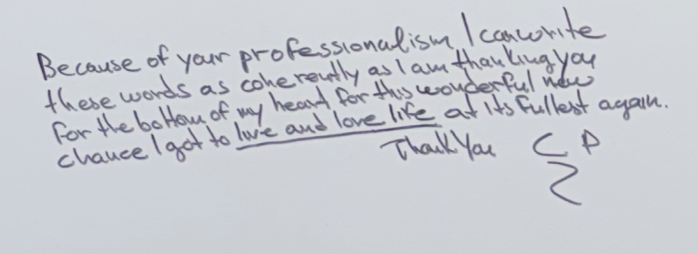 Because of your professionalism I can write
these words as coherently as I am thanking you
for the bottom of my heart for this wonderful new
chance I got to live and love life at its fullest again.
Thank You C P